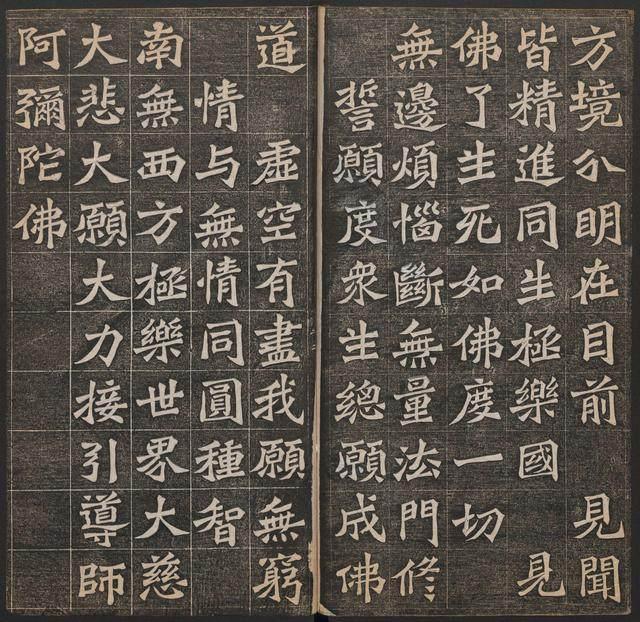 方境分明在目前　見聞
皆精進同生極樂國　見
佛了生死如佛度一切
無邊煩惱斷無量法門修
誓願度衆生總願成佛
道　虛空有盡我願無窮
情与無情同圓種智
南無西方極樂世界大慈
大悲大願大力接引導師
阿彌陀佛